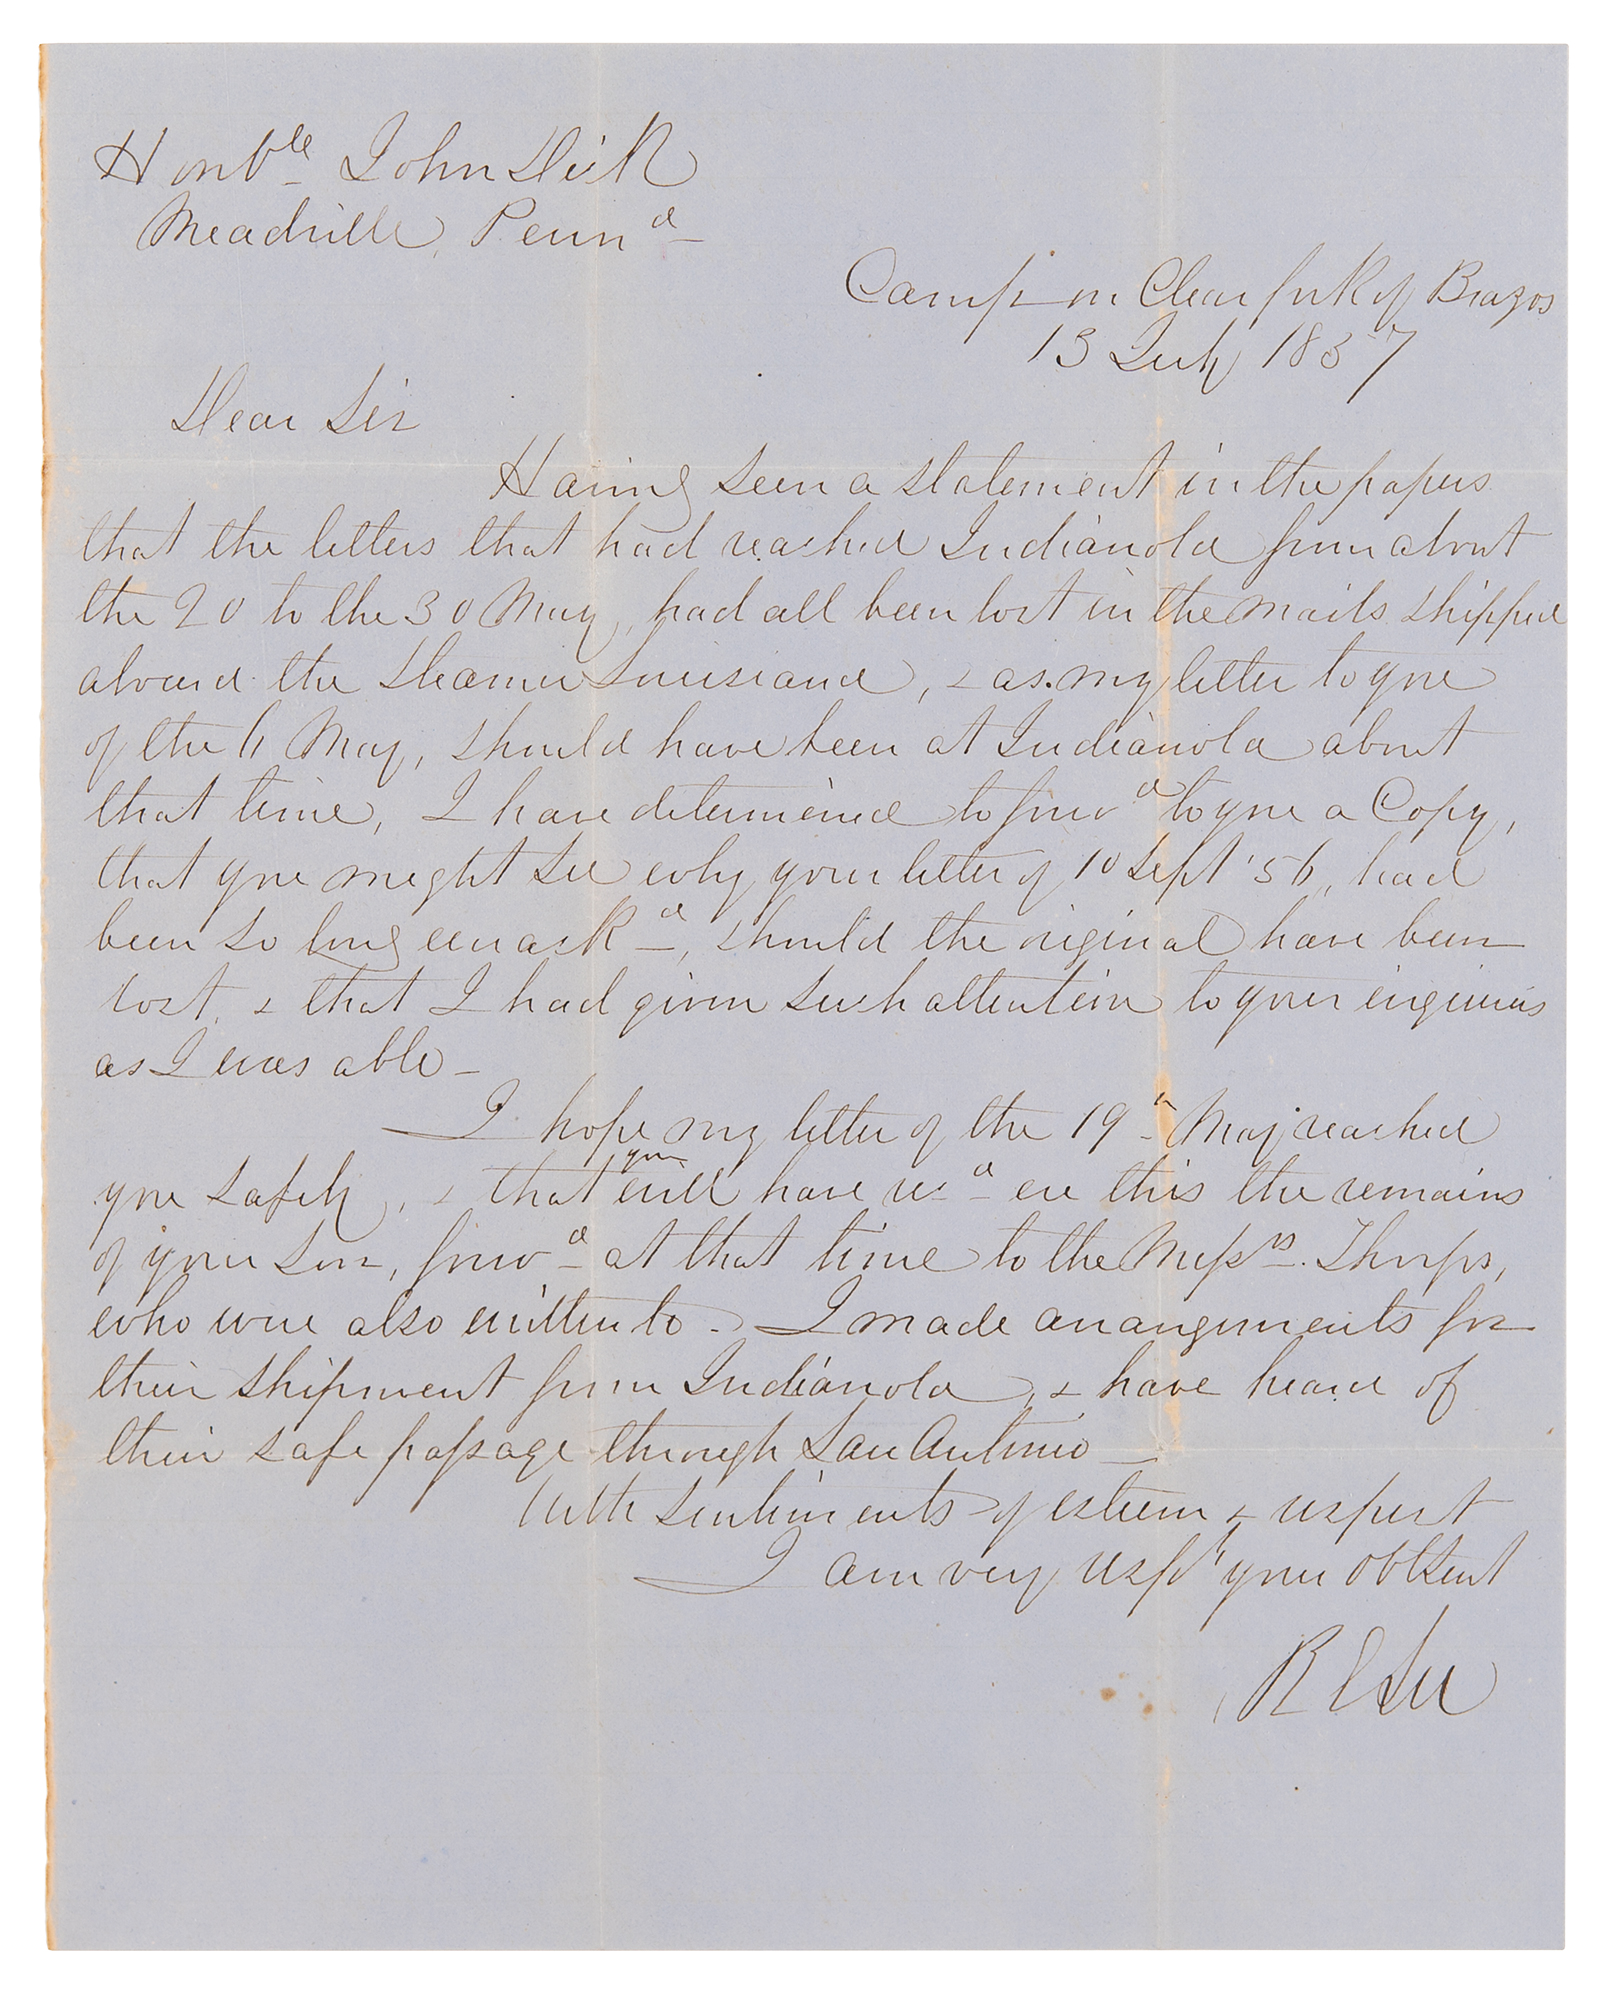 Honble John Dick
Meadville, Pennа
Camp on Clear fork of Brazos
13 July 1857
Dear Sir
Having seen a statement in the papers
that the letters that had reached Indianola from about
the 20 to the 30 May, had all been lost in the mails shipped
aboard the Steamer Louisiana, & as my letter to you
of the 6 May, should have been at Indianola about
that time, I have determined to forwd to you a Copy,
that you might see why your letter of 10 Sept '56, had
been so long unaskd, should the original have been
lost, & that I had given such attention to your inquiries
as I was able -
I hope my letter of the 19h May reached
you safely, & that you will have recd ere this the remains
of your Son, forwd at that time to the Messrs. Thorps,
who were also written to - I made arrangements for
their shipment from Indianola, & have heard of
their safe passage through San Antonio -
With sentiments of esteem & respect
I am very respy your obt Sent
R E Lee